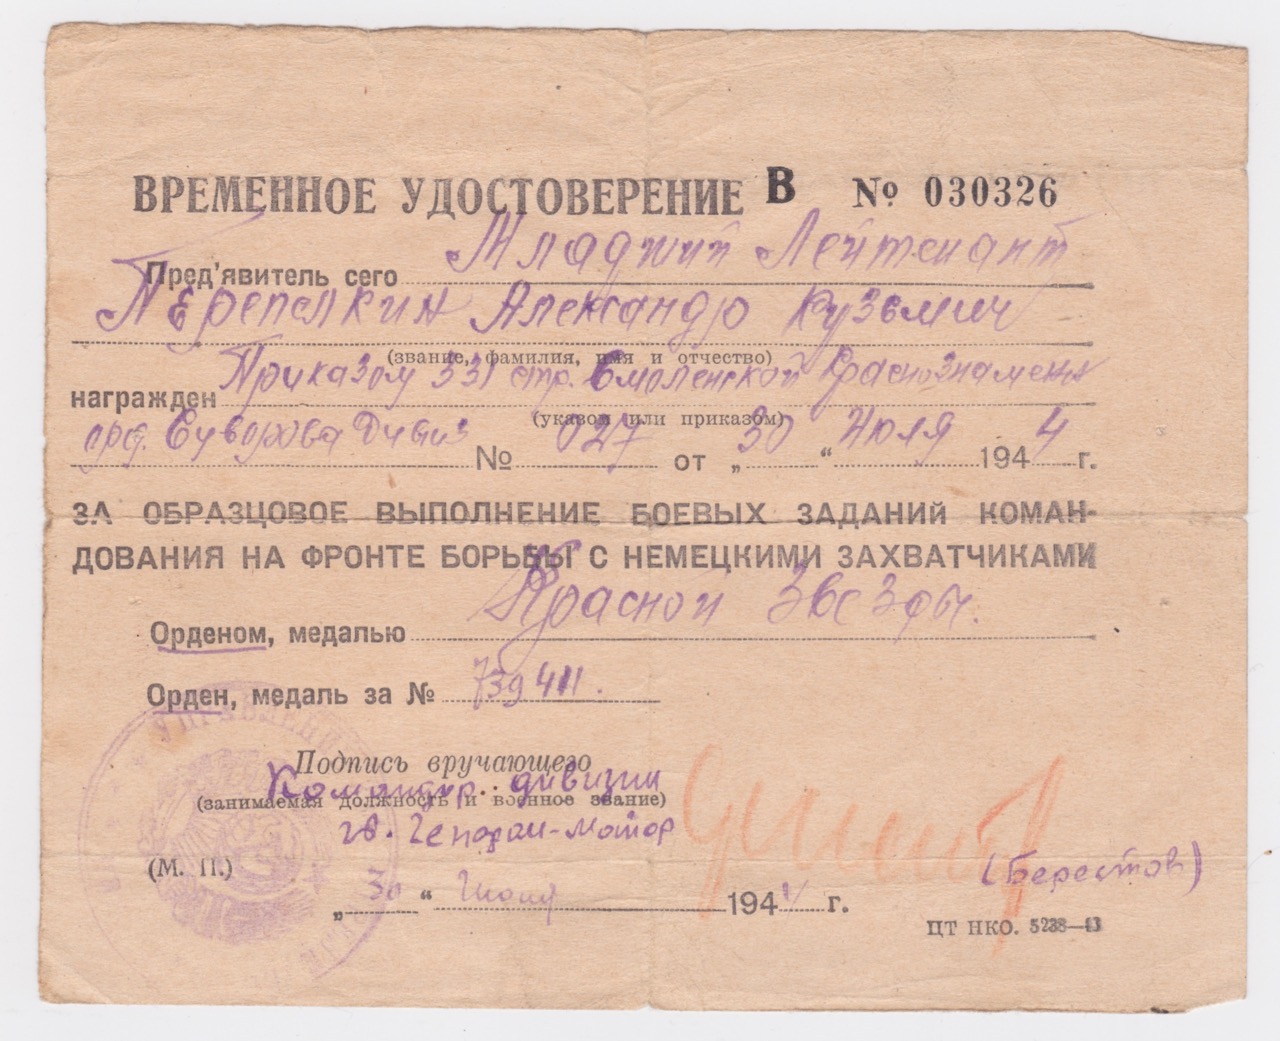 ВРЕМЕННОЕ УДОСТОВЕРЕНИЕ В № 030326
Пред'явитель сего Младший Лейтенант
Перепелкин Александр Кузьмич
(звание, фамилия, имя и отчество)
награжден Приказом 331 стр. Смоленской Краснознамен
(указом или приказом)
орд. Суворова Дивиз № 027 от „30“ Июля 1944 г.
ЗА ОБРАЗЦОВОЕ ВЫПОЛНЕНИЕ БОЕВЫХ ЗАДАНИЙ КОМАН-
ДОВАНИЯ НА ФРОНТЕ БОРЬБЫ С НЕМЕЦКИМИ ЗАХВАТЧИКАМИ
Орденом, медалью Красной Звезды.
Орден, медаль за № 739411.
Подпись вручающего
Командир дивизии
(занимаемая должность и военное звание)
гв. Генерал-майор
(Берестов)
(М. П.)
„30“ Июля 1944 г.
ЦТ НКО. 5238—43